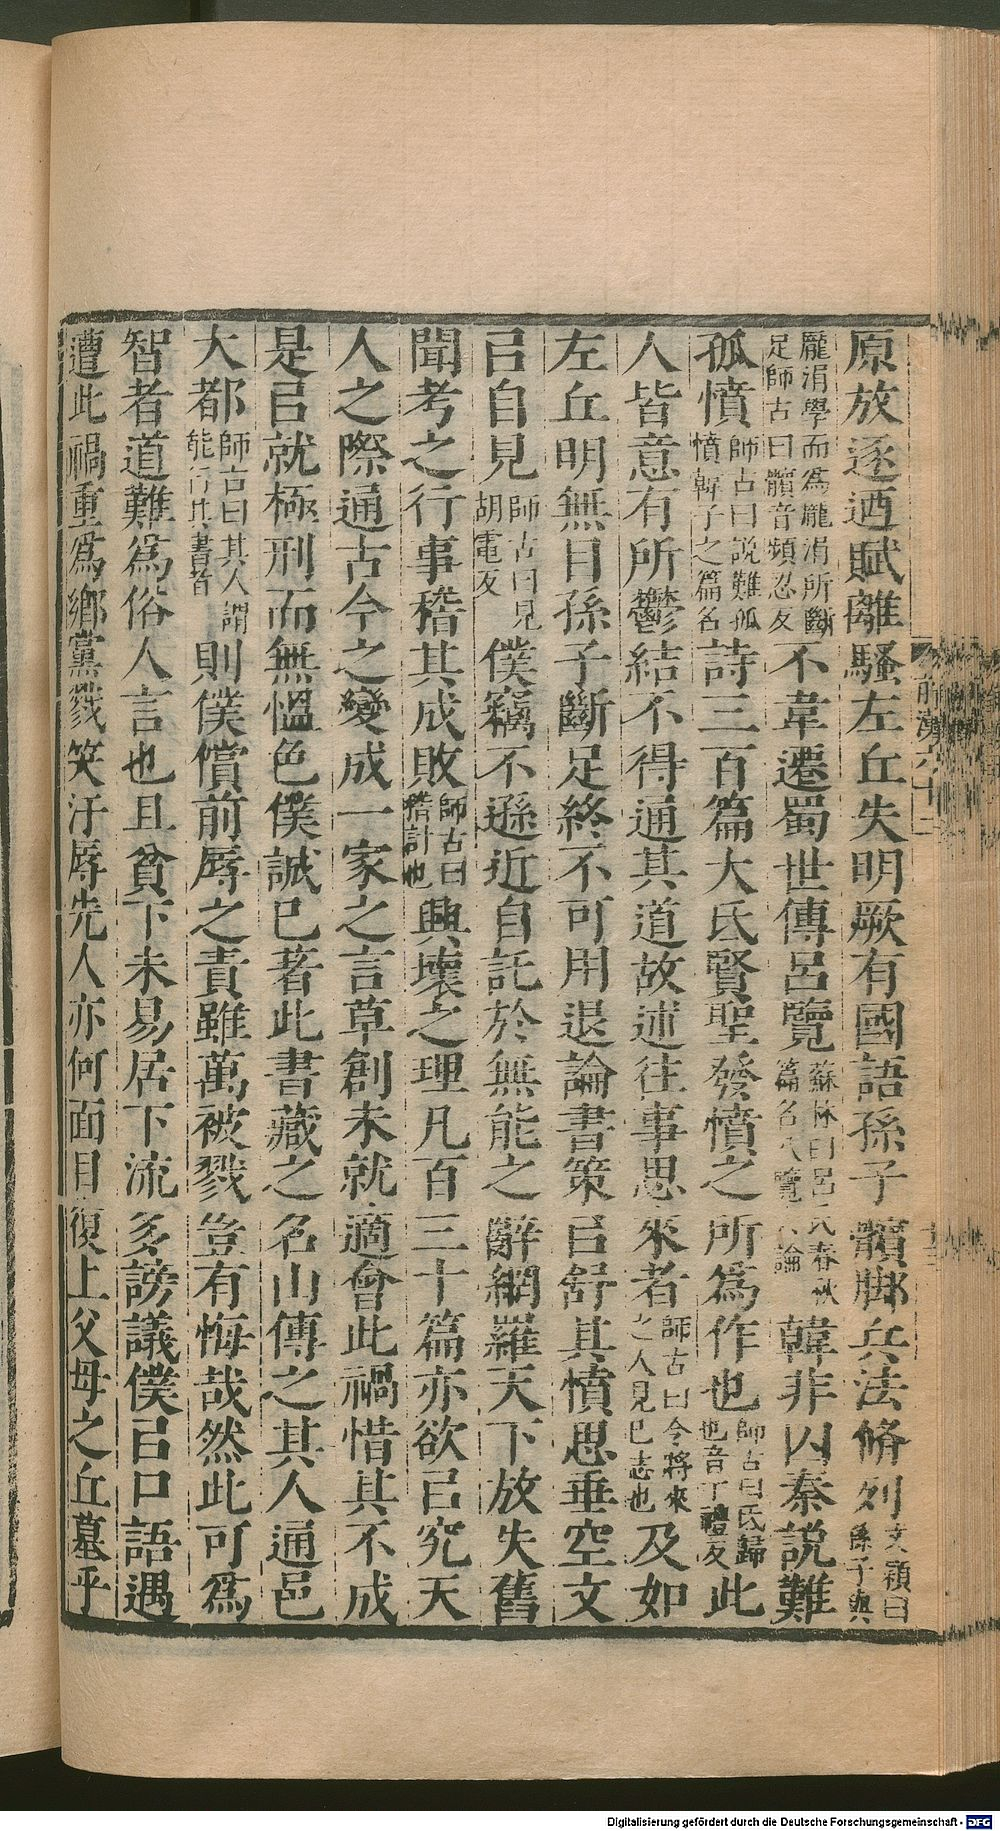 原放逐廼賦離騷左丘失明厥有國語孫子髕脚兵法脩列文穎曰孫子與
龐涓學而為龐涓所斷足師古曰髕音頻忍反不韋遷蜀世傳呂覽蘇林曰呂氏春秋篇名八覽六論韓非囚秦說難
孤憤師古曰說難孤憤韓子之篇名詩三百篇大氐賢聖發憤之所為作也師古曰氐歸也音丁禮反此
人皆意有所鬱結不得通其道故述往事思來者師古曰令將來之人見己志也及如
左丘明無目孫子斷足終不可用退論書策㠯舒其憤思垂空文
㠯自見師古曰見胡電反僕竊不遜近自託於無能之辭網羅天下放失舊
聞考之行事稽其成敗師古曰稽計也興壞之理凡百三十篇亦欲㠯究天
人之際通古今之變成一家之言草創未就適會此禍惜其不成
是㠯就極刑而無慍色僕誠已著此書藏之名山傳之其人通邑
大都師古曰其人謂能行其書者則僕償前辱之責雖萬被戮豈有悔哉然此可為
智者道難為俗人言也且貧下未易居下流多謗議僕㠯口語遇
遭此禍重為鄉黨戮笑汙辱先人亦何面目復上父母之丘墓乎
Digitalisierung gefördert durch die Deutsche Forschungsgemeinschaft - DFG